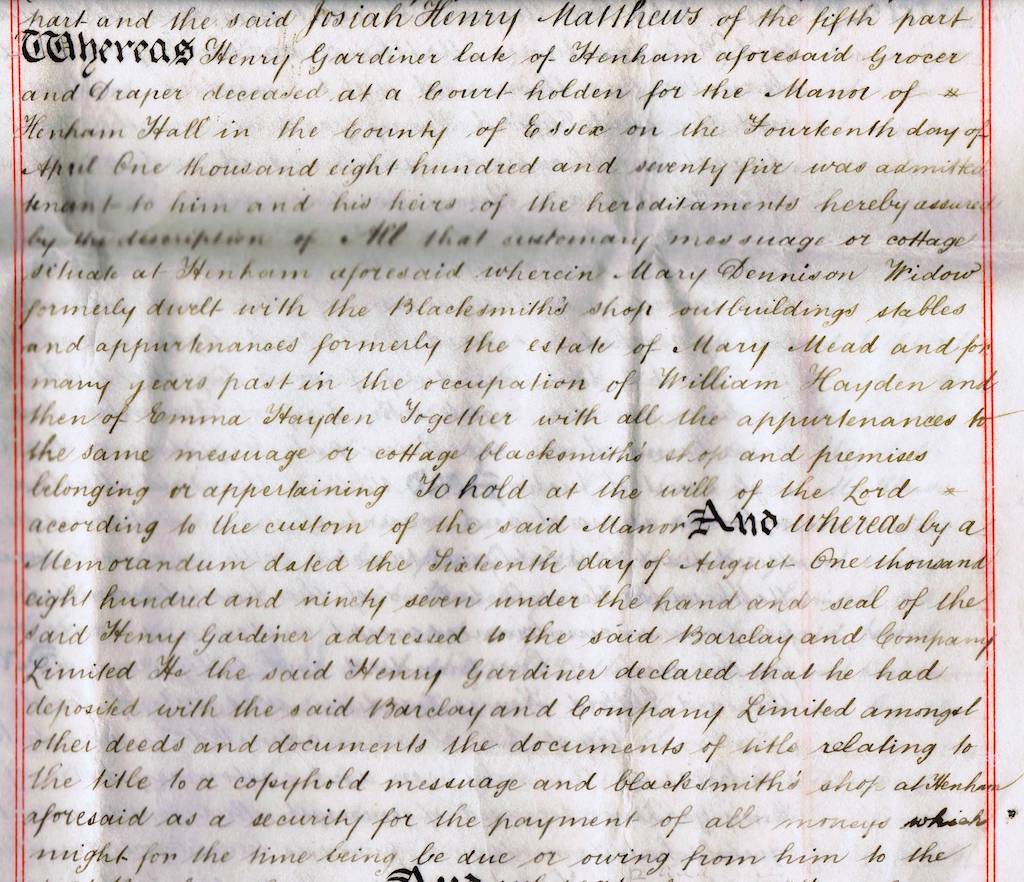 part and the said Josiah Henry Matthews of the fifth part
Whereas Henry Gardiner late of Henham aforesaid Grocer
and Draper deceased at a Court holden for the Manor of
Henham Hall in the County of Essex on the Fourteenth day of
April One thousand eight hundred and seventy five was admitted
tenant to him and his heirs of the hereditaments hereby assured
by the description of All that customary messuage or cottage
situate at Henham aforesaid wherein Mary Dennison Widow
formerly dwelt with the Blacksmith's shop outbuildings stables
and appurtenances formerly the estate of Mary Mead and for
many years past in the occupation of William Hayden and
then of Emma Hayden Together with all the appurtenances to
the same messuage or cottage blacksmith's shop and premises
belonging or appertaining To hold at the will of the Lord
according to the custom of the said Manor And whereas by a
Memorandum dated the Sixteenth day of August One thousand
eight hundred and ninety seven under the hand and seal of the
said Henry Gardiner addressed to the said Barclay and Company
Limited He the said Henry Gardiner declared that he had
deposited with the said Barclay and Company Limited amongst
other deeds and documents the documents of title relating to
the title to a copyhold messuage and blacksmith's shop at Henham
aforesaid as a security for the payment of all moneys which
might for the time being be due or owing from him to the
And whereas